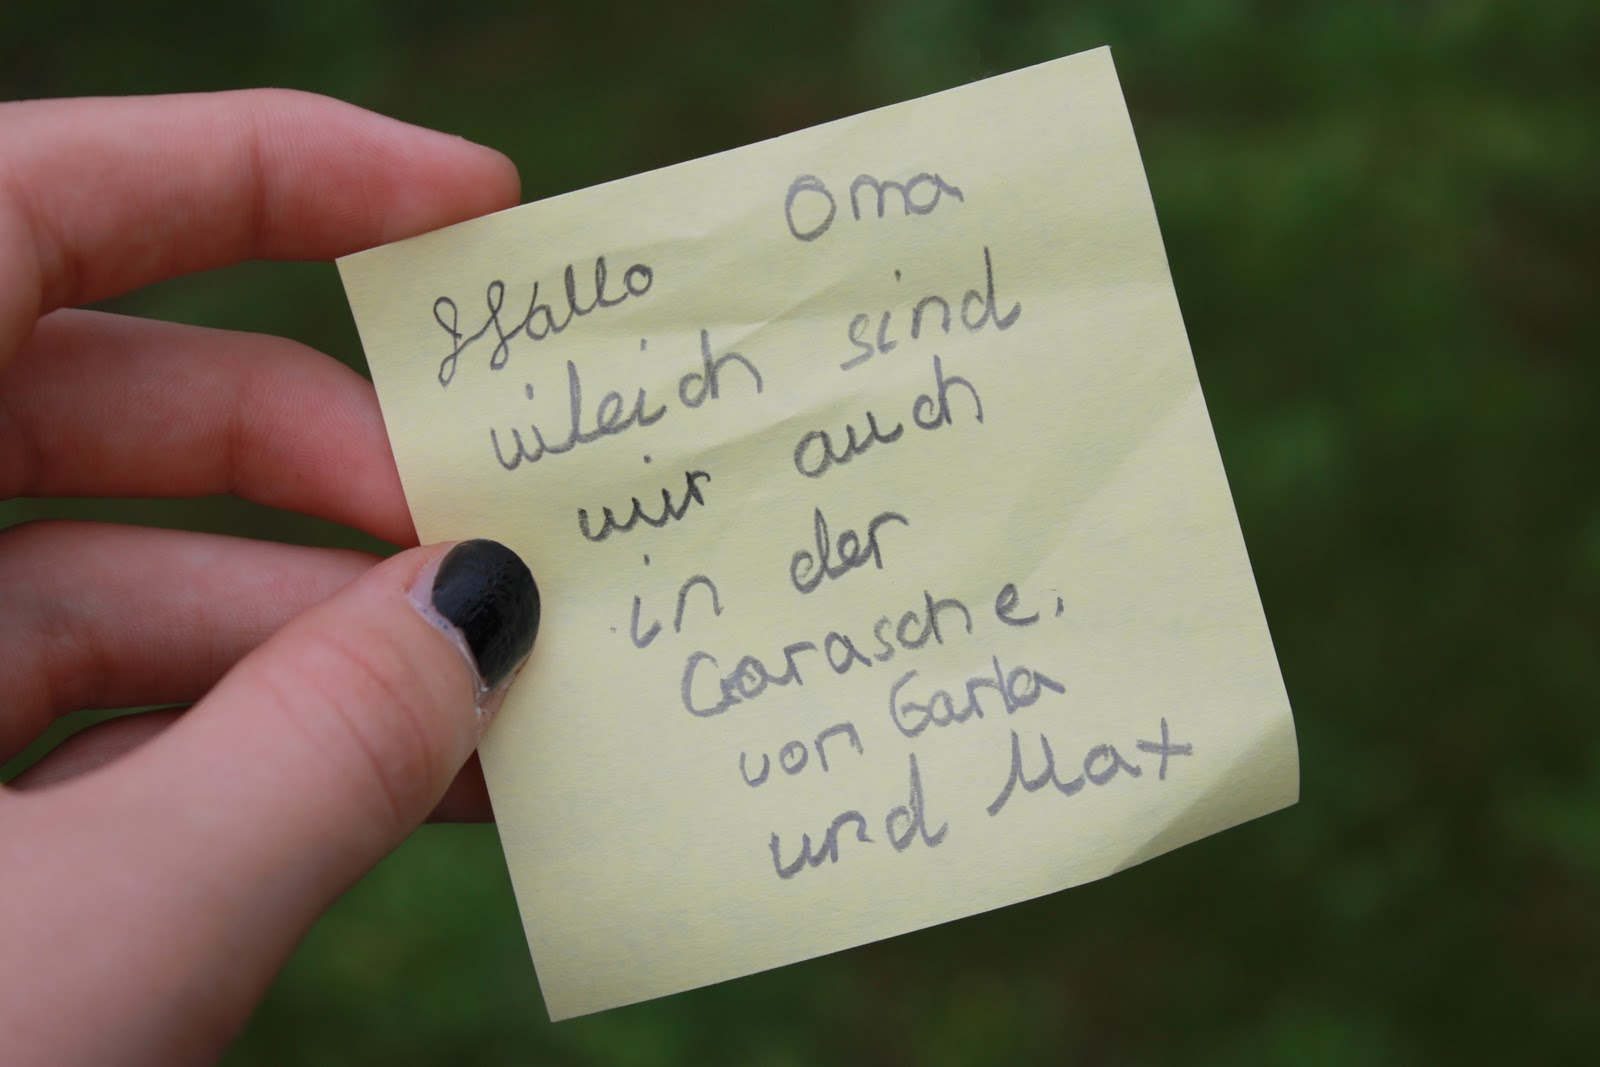 Hallo Oma
vileich sind
wir auch
in der
Garasche.
von Carla
und Max